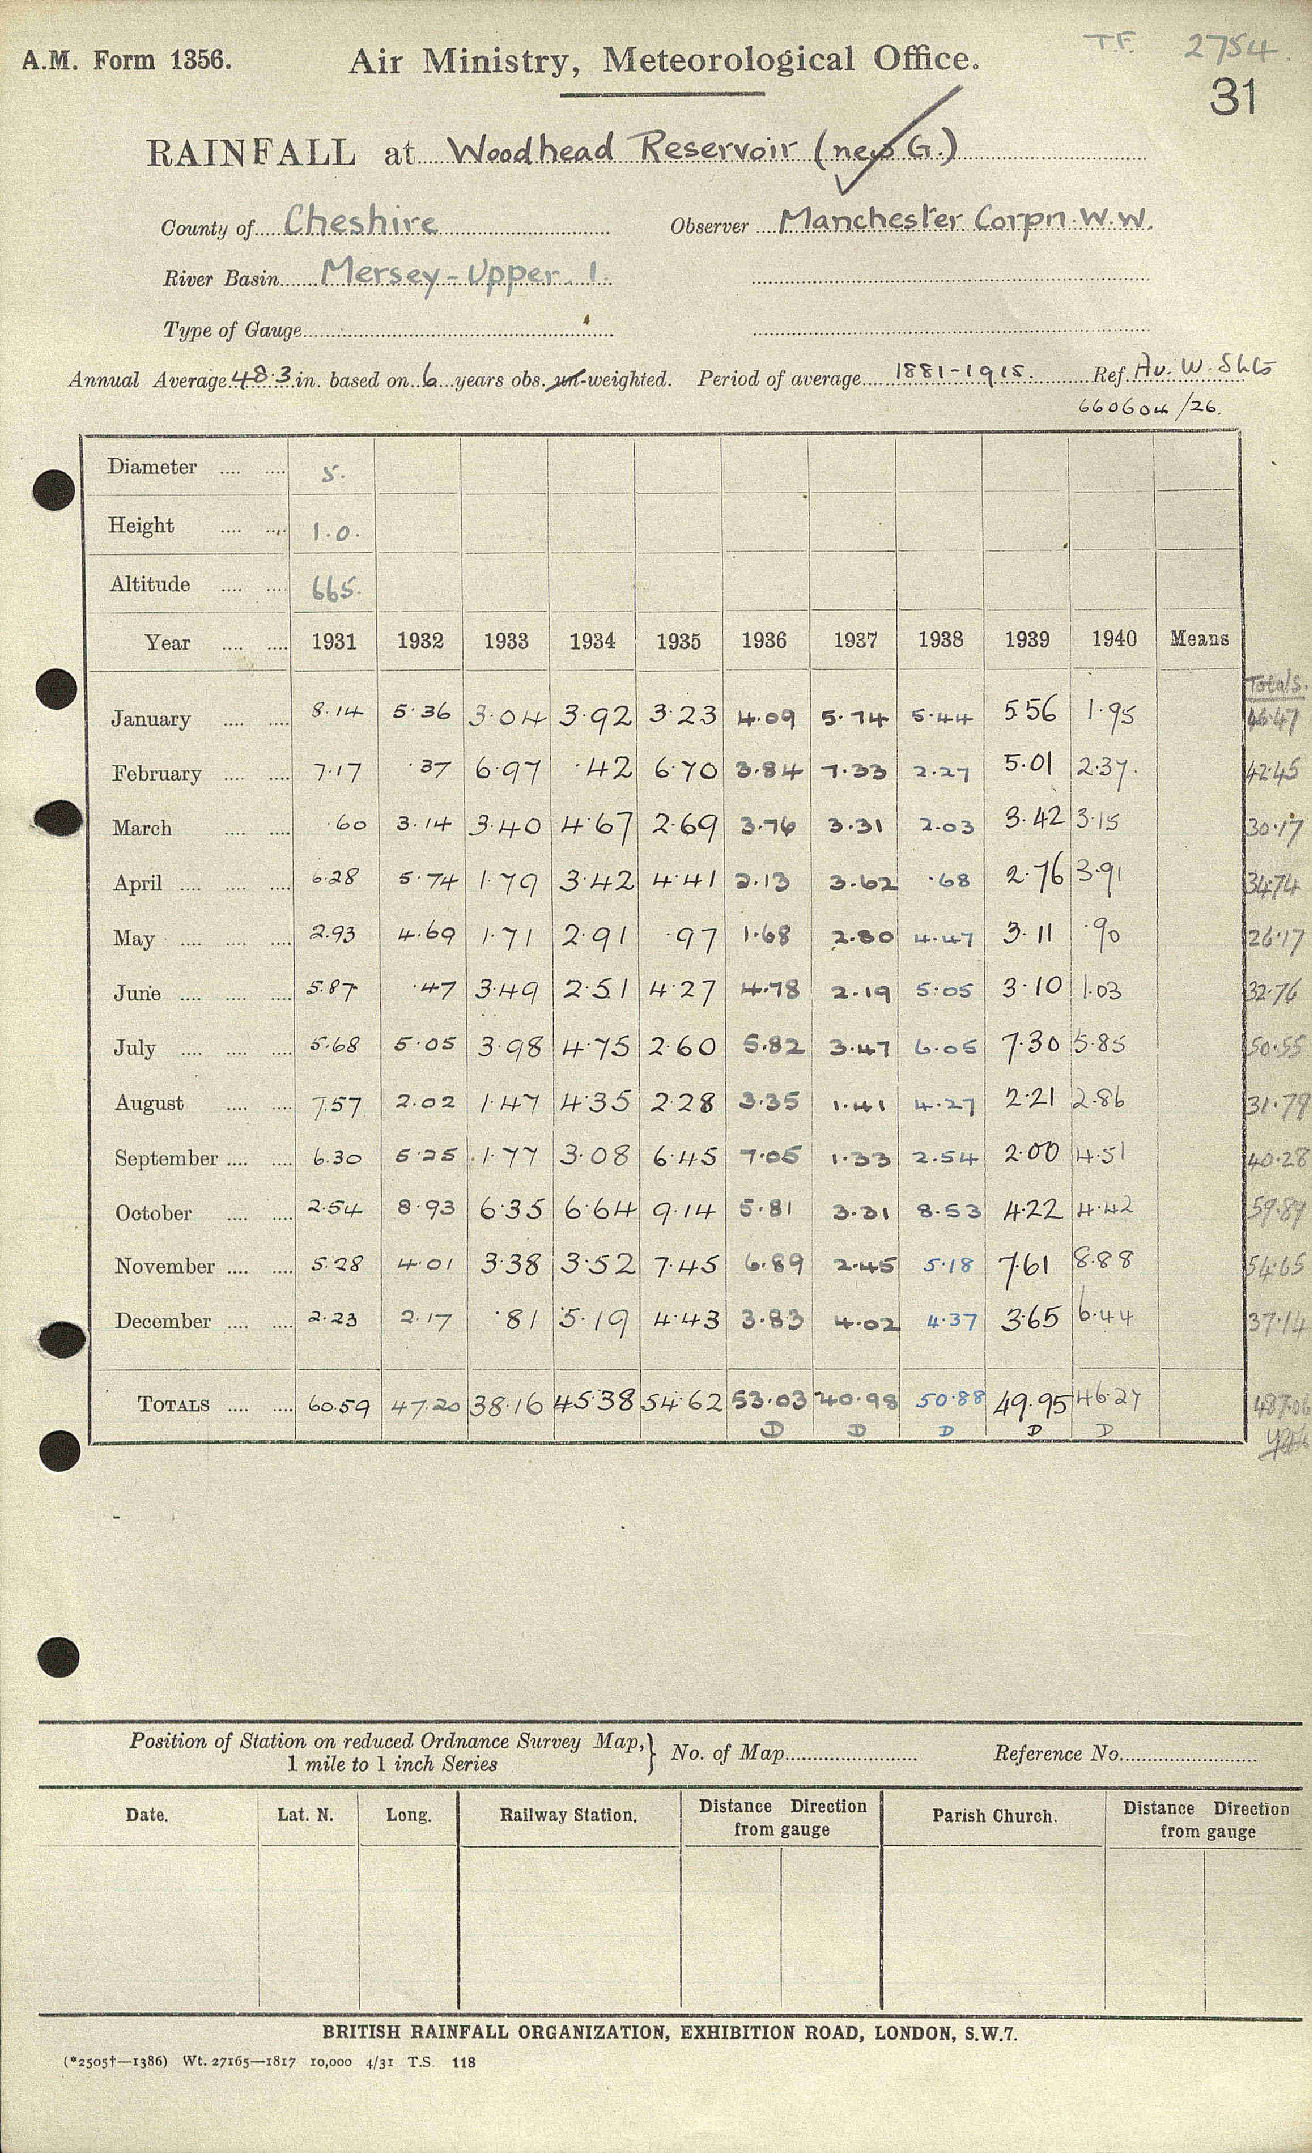 T.F. 2754.
A.M. Form 1356. Air Ministry, Meteorological Office.
31
RAINFALL at Woodhead Reservoir (new G.)
County of Cheshire Observer Manchester Corpn. W.W.
River Basin Mersey-Upper. 1.
Type of Gauge
Annual Average 48.3 in. based on 6 years obs. un-weighted. Period of average 1881-1915. Ref. Av. W. Shts
660604/26.
Diameter 5.
Height 1.0.
Altitude 665.
Year 1931 1932 1933 1934 1935 1936 1937 1938 1939 1940 Means
Totals.
January 8.14 5.36 3.04 3.92 3.23 4.09 5.74 5.44 5.56 1.95 46.47
February 7.17 .37 6.97 .42 6.70 3.84 7.33 2.27 5.01 2.37. 42.45
March .60 3.14 3.40 4.67 2.69 3.76 3.31 2.03 3.42 3.15 30.17
April 6.28 5.74 1.79 3.42 4.41 2.13 3.62 .68 2.76 3.91 34.74
May 2.93 4.69 1.71 2.91 .97 1.68 2.80 4.47 3.11 .90 26.17
June 5.87 .47 3.49 2.51 4.27 4.78 2.19 5.05 3.10 1.03 32.76
July 5.68 5.05 3.98 4.75 2.60 5.82 3.47 6.05 7.30 5.85 50.55
August 7.57 2.02 1.47 4.35 2.28 3.35 1.41 4.27 2.21 2.86 31.79
September 6.30 5.25 1.77 3.08 6.45 7.05 1.33 2.54 2.00 4.51 40.28
October 2.54 8.93 6.35 6.64 9.14 5.81 3.31 8.53 4.22 4.42 59.89
November 5.28 4.01 3.38 3.52 7.45 6.89 2.45 5.18 7.61 8.88 54.65
December 2.23 2.17 .81 5.19 4.43 3.83 4.02 4.37 3.65 6.44 37.14
TOTALS 60.59 47.20 38.16 45.38 54.62 53.03 40.98 50.88 49.95 46.27 487.06
D D D D D
Position of Station on reduced Ordnance Survey Map,
1 mile to 1 inch Series } No. of Map Reference No.
Date. Lat. N. Long. Railway Station. Distance from gauge Direction Parish Church. Distance from gauge Direction
BRITISH RAINFALL ORGANIZATION, EXHIBITION ROAD, LONDON, S.W.7.
(*2505†—1386) Wt. 27165—1817 10,000 4/31 T.S. 118